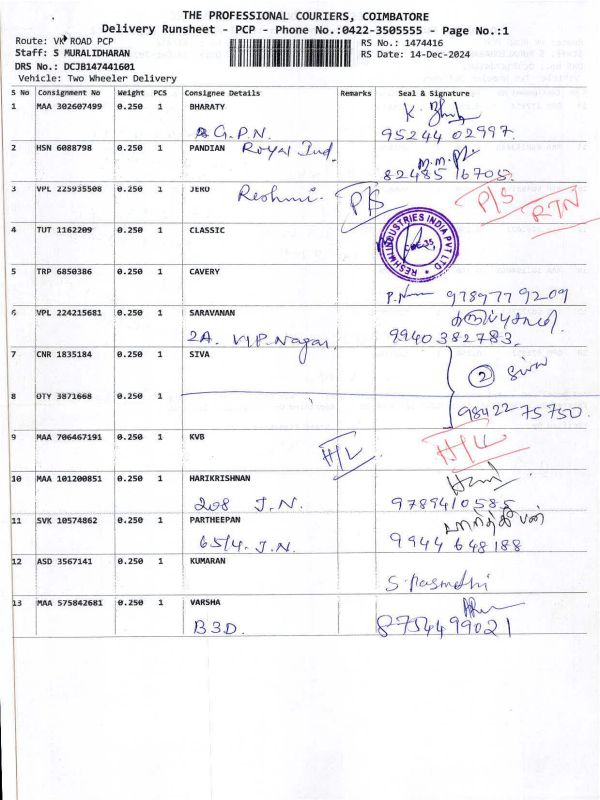 THE PROFESSIONAL COURIERS, COIMBATORE
Delivery Runsheet - PCP - Phone No.:0422-3505555 - Page No.:1
Route: VK ROAD PCP
RS No.: 1474416
Staff: S MURALIDHARAN
RS Date: 14-Dec-2024
DRS No.: DCJB147441601
Vehicle: Two Wheeler Delivery
S No Consignment No Weight PCS Consignee Details Remarks Seal & Signature
1 MAA 302607499 0.250 1 BHARATY
G.P.N. 95244 02997.
2 HSN 6088798 0.250 1 PANDIAN Royal Ind.
82485 16705.
3 VPL 225935508 0.250 1 JERO Reshmi. P/S P/S RTN
4 TUT 1162209 0.250 1 CLASSIC
RESHMI INDUSTRIES INDIA PVT LTD
5 TRP 6850386 0.250 1 CAVERY
9789779209
6 VPL 224215681 0.250 1 SARAVANAN
2A. V.I.P. Nagar. 9940382783.
7 CNR 1835184 0.250 1 SIVA 2 Siva
8 OTY 3871668 0.250 1
98422 75750.
9 MAA 706467191 0.250 1 KVB H/L H/L
10 MAA 101200851 0.250 1 HARIKRISHNAN
208 J.N. 9789410585
11 SVK 10574862 0.250 1 PARTHEEPAN
65/4. J.N. 9944 648188
12 ASD 3567141 0.250 1 KUMARAN
13 MAA 575842681 0.250 1 VARSHA
B3D. 8754499021